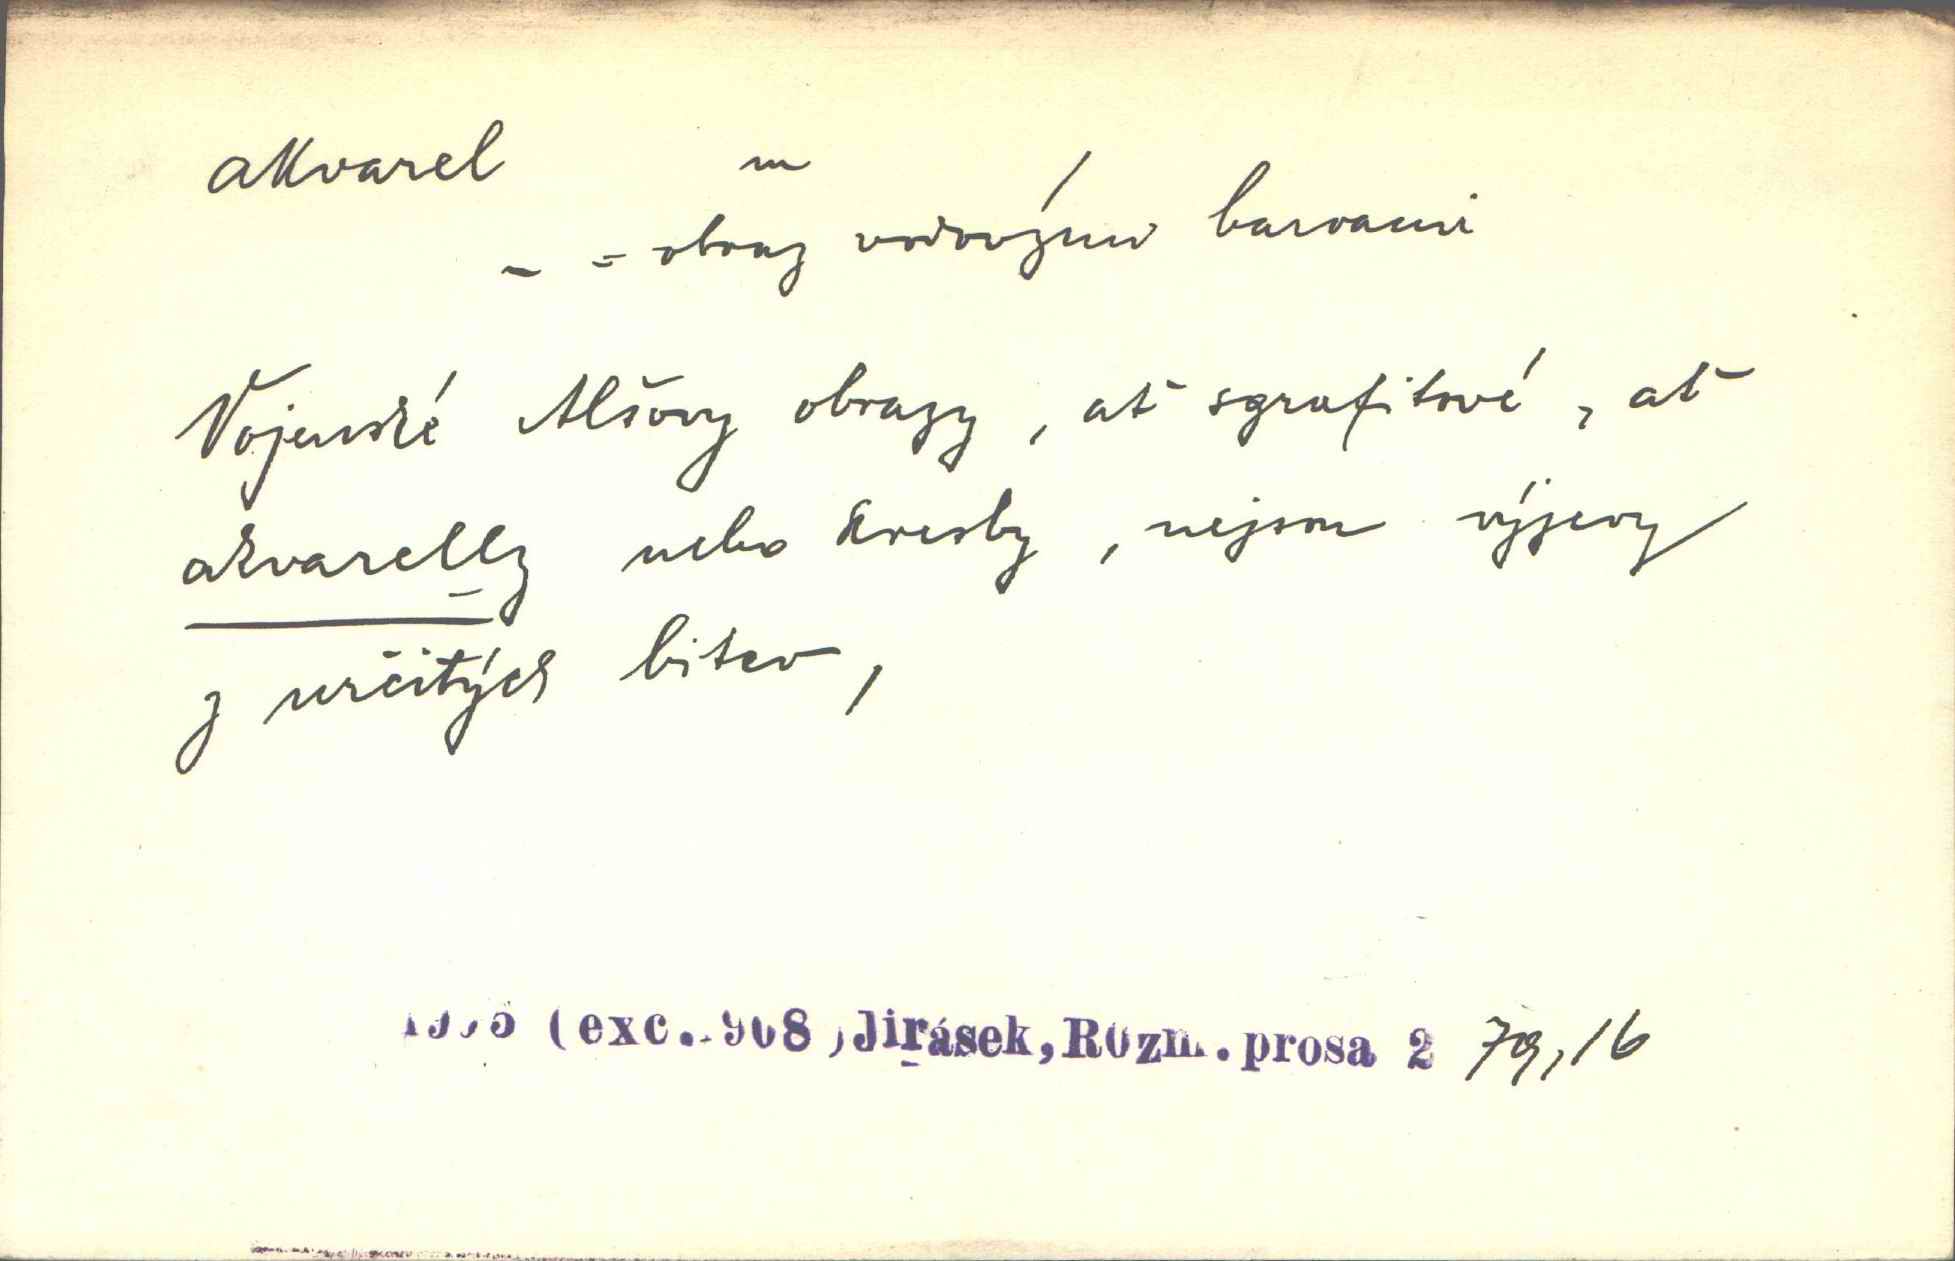 akvarel m
– = obraz vodovými barvami
Vojenské Alšovy obrazy, ať sgrafitové, ať
akvarelly nebo kresby, nejsou výjevy
z určitých bitev,
(exc. 908) Jirásek, Rozm. prosa 2 79,16